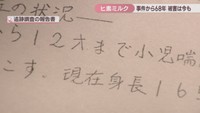 ヒ素ミルク
事件から68年 被害は今も
追跡調査の報告書
の状況
ら12才まで小児喘
こす。現在身長16